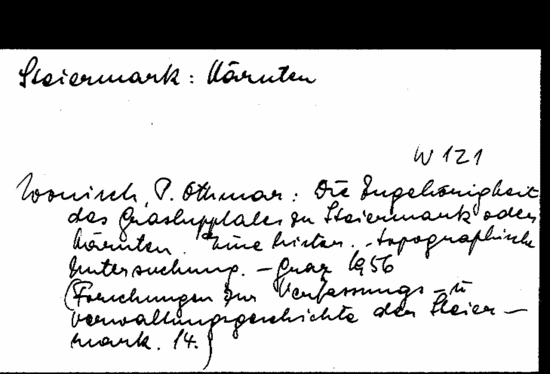 Steiermark: Kärnten
W 121
Wonisch, P. Othmar: Die Zugehörigkeit
des Graslupptales zu Steiermark oder
Kärnten. Eine histor.-topographische
Untersuchung. - Graz 1956
(Forschungen zur Verfassungs- u
Verwaltungsgeschichte der Steier-
mark. 14.)